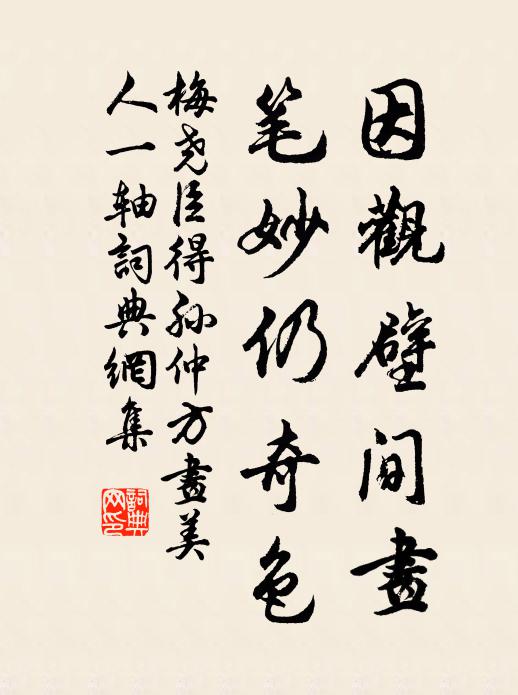 因觀壁間畫
笔妙仍奇色
梅尧臣得孙仲方畫美
人一轴詞典網集
詞典网印